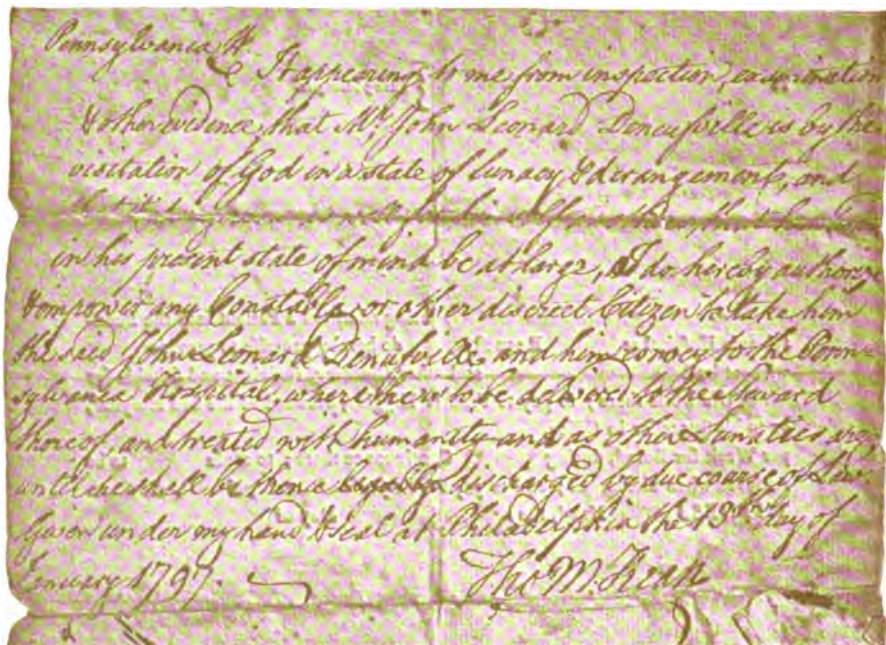 Pennsylvania ss.
It appearing to me from inspection, examination
& other evidence, that Mr. John Leonard Deneufville is by the
visitation of God in a state of lunacy & derangement, and
in his present state of mind be at large, I do hereby authorize
& empower any Constable or other discreet Citizen to take him
the said John Leonard Deneufville and him convey to the Penn-
sylvania Hospital, where he is to be delivered to the Steward
thereof, and treated with humanity and as other Lunatics are,
until he shall be thence legally discharged by due course of Law
Given under my hand & Seal at Philadelphia the 13th day of
January 1797.
Tho M:Kean